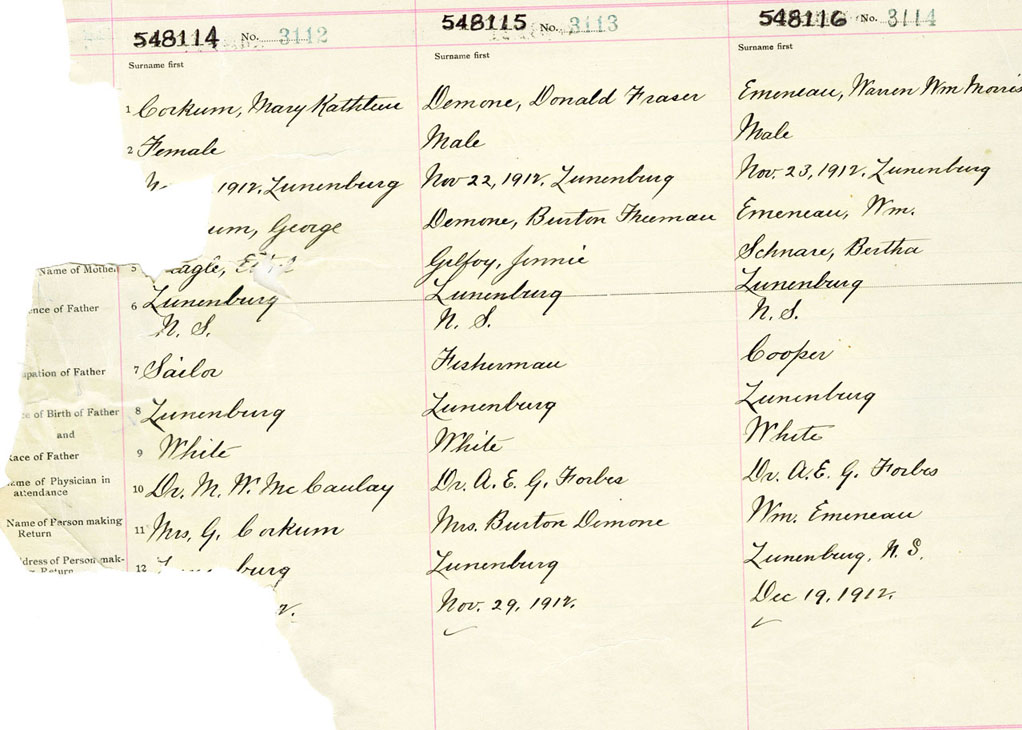 548114 No. 3112
Surname first
1 Corkum, Mary Kathleen
2 Female
1912, Lunenburg
um, George
Name of Mother 5 eagle,
ence of Father 6 Lunenburg
N. S.
upation of Father 7 Sailor
ce of Birth of Father 8 Lunenburg
and
Race of Father 9 White
ame of Physician in attendance 10 Dr. M. W. McCaulay
Name of Person making Return 11 Mrs. G. Corkum
dress of Person mak- Return 12 burg
548115 No. 3113
Surname first
Demone, Donald Fraser
Male
Nov 22, 1912, Lunenburg
Demone, Burton Freeman
Gelfoy, Jennie
Lunenburg
N. S.
Fisherman
Lunenburg
White
Dr. A. E. G. Forbes
Mrs. Burton Demone
Lunenburg
Nov. 29, 1912.
548116 No. 3114
Surname first
Emeneau, Warren Wm Morris
Male
Nov. 23, 1912, Lunenburg
Emeneau, Wm.
Schnare, Bertha
Lunenburg
N. S.
Cooper
Lunenburg
White
Dr. A. E. G. Forbes
Wm. Emeneau
Lunenburg, N. S.
Dec 19, 1912.